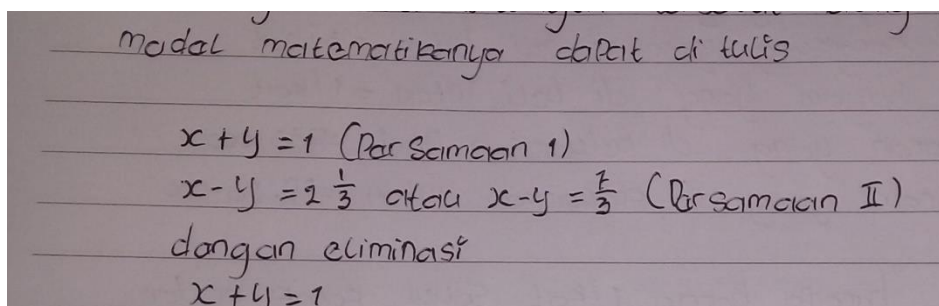 madal matematikanya dapat di tulis
x + y = 1 (Parsamaan 1)
x - y = 2 1/3 atau x - y = 7/3 (Parsamaan II)
dangan eliminasi
x + y = 1